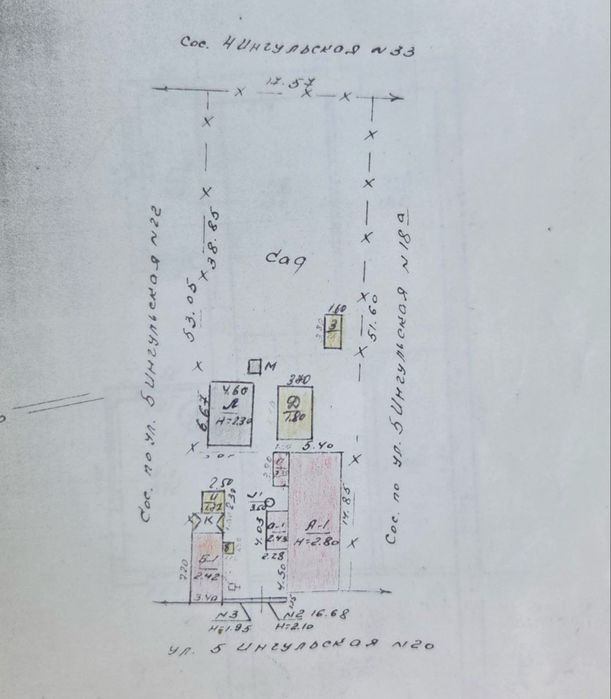 Сос. 4 Ингульская №33
17.57
38.85
53.05
Сос. по ул. 5 Ингульская №22
Сад
51.60
Сос. по ул. 5 Ингульская №18а
1.60
3
М
4.60
Л
Н=2.30
6.67
3.80
Д
1.80
5.40
2.50
К
4.03
а-1
2.43
2.28
А-1
Н=2.80
14.85
4.50
Б-1
2.42
7.20
3.40
№3
Н=1.95
№2
Н=2.10
16.68
ул. 5 Ингульская №20